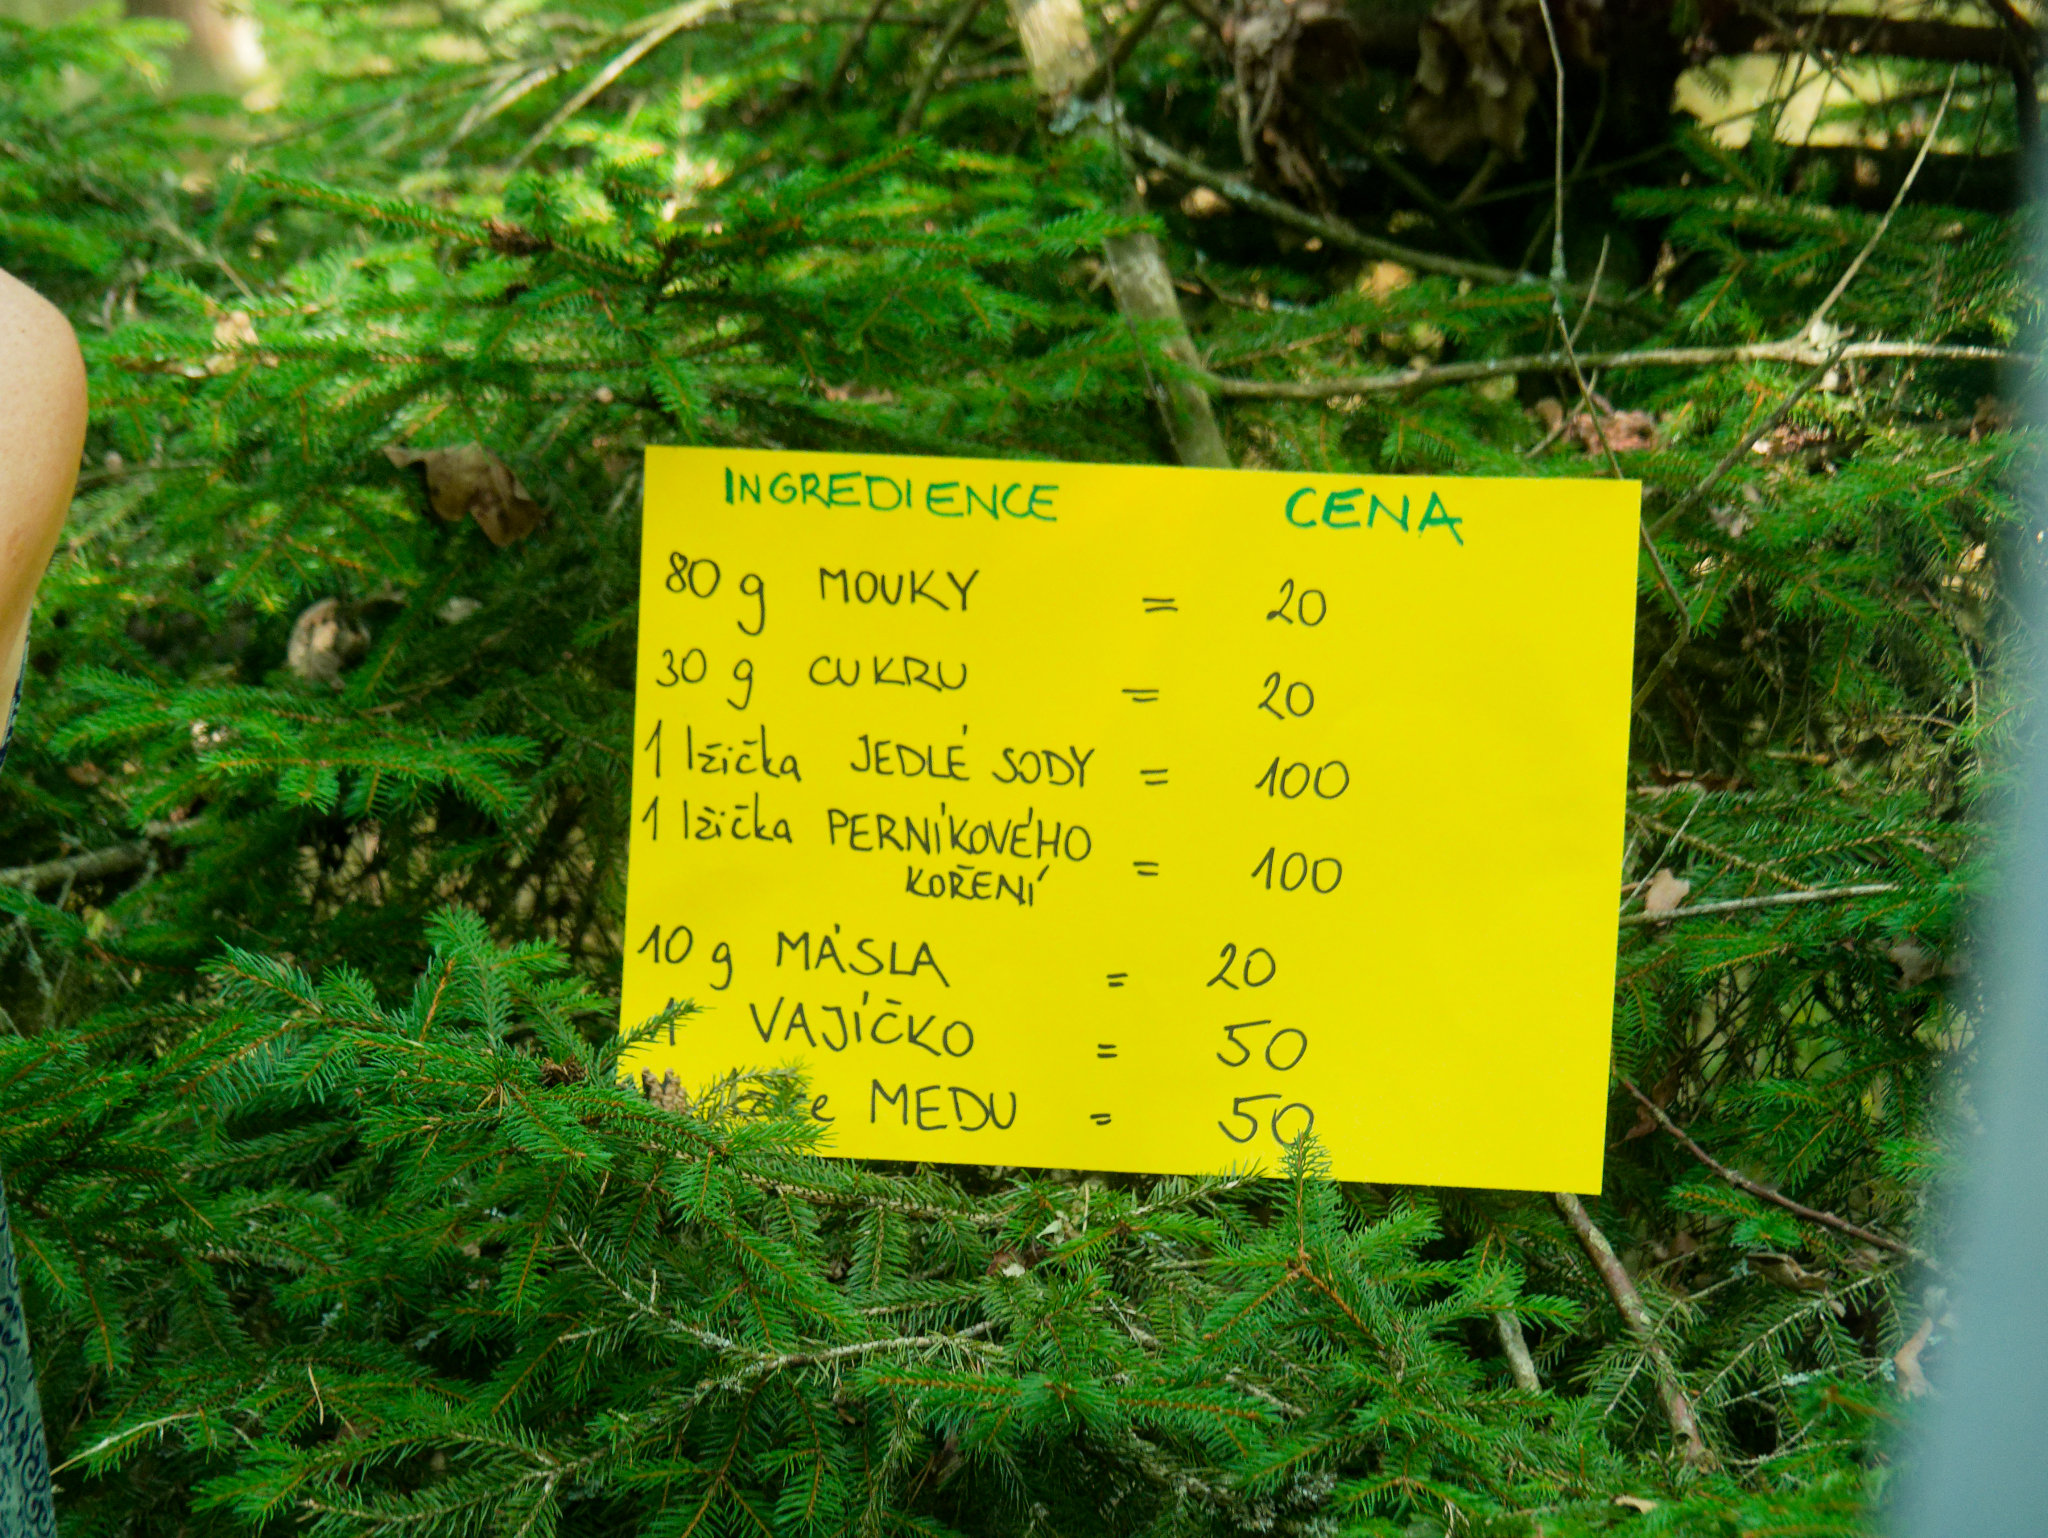 INGREDIENCE CENA
80 g MOUKY = 20
30 g CUKRU = 20
1 lžička JEDLÉ SODY = 100
1 lžička PERNÍKOVÉHO
KOŘENÍ = 100
10 g MÁSLA = 20
1 VAJÍČKO = 50
MEDU = 50